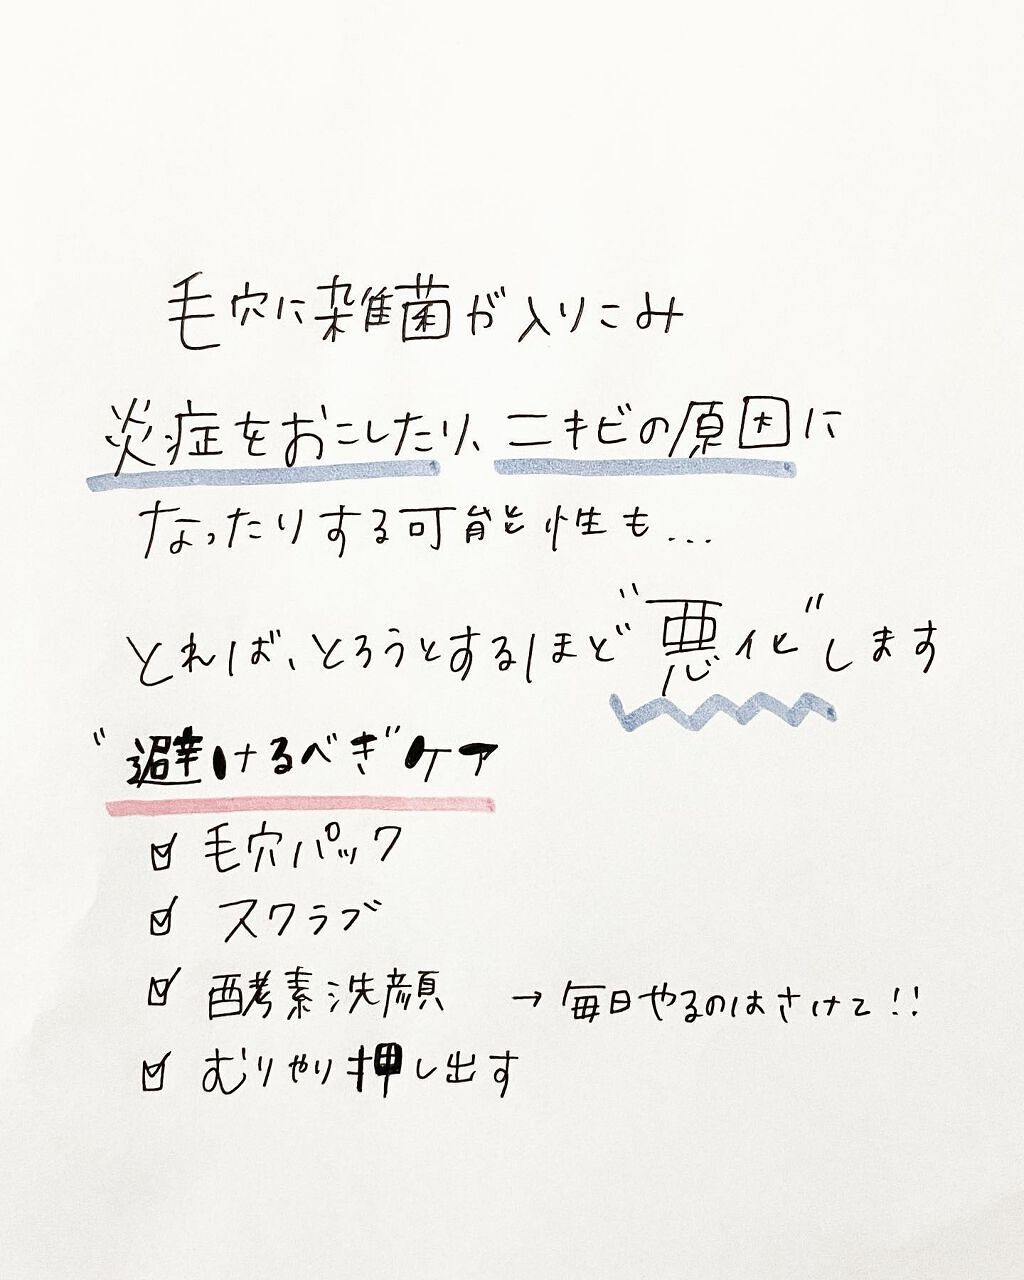 毛穴に雑菌が入りこみ
炎症をおこしたり、ニキビの原因に
なったりする可能性も...
とれば、とろうとするほど"悪化"します
"避けるべき"ケア
☑ 毛穴パック
☑ スクラブ
☑ 酵素洗顔 → 毎日やるのはさけて!!
☑ むりやり押し出す